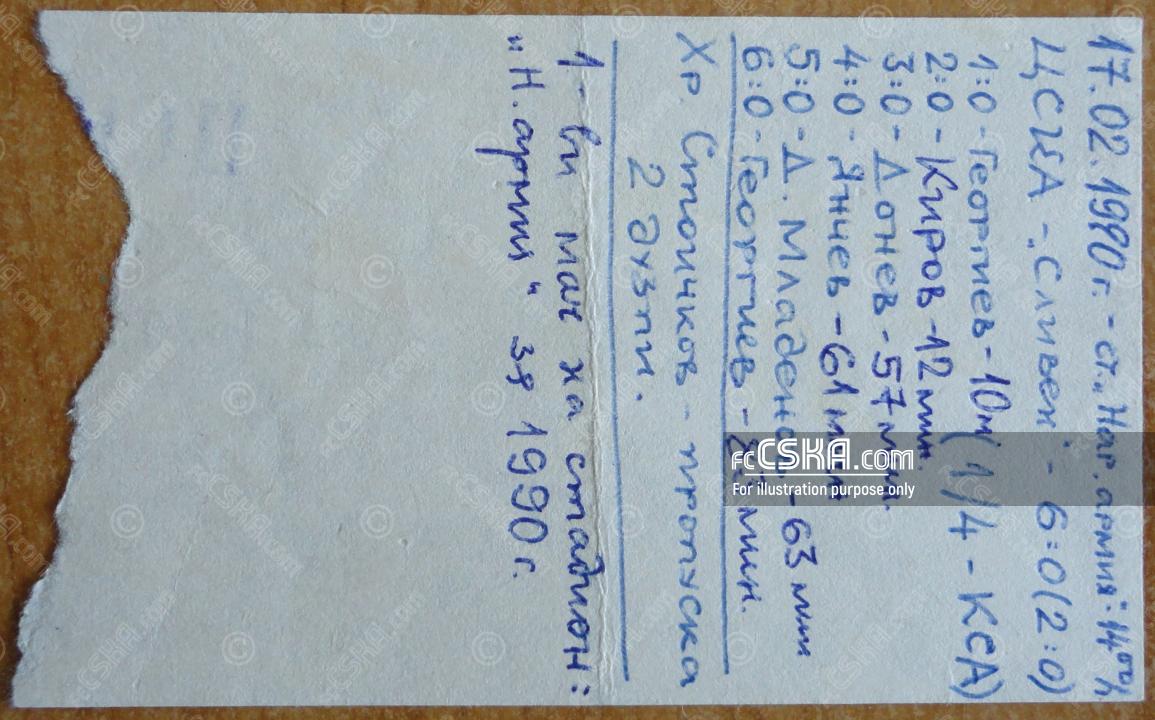 17.02.1990 г. - ст. „Нар. армия": 14⁰⁰ ч
ЦСКА - „Сливен" - 6:0 (2:0)
1:0 - Георгиев - 10 м (1/4 - КСА)
2:0 - Киров - 12 мин.
3:0 - Донев - 57 мин.
4:0 - Янчев - 61 мин
5:0 - Д. Младенов - 63 мин
6:0 - Георгиев - мин.
Хр. Стоичков - пропуска
2 дузпи.
1-ви мач на стадион:
„Н. армия" за 1990 г.
fcCSKA.com
For illustration purpose only